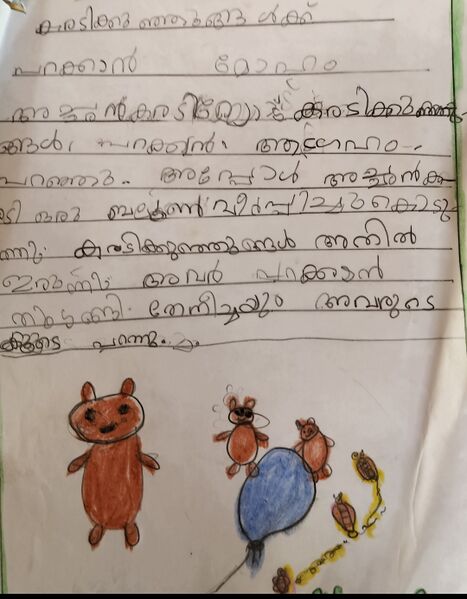 കരടിക്കുഞ്ഞുങ്ങൾക്ക്
പറക്കാൻ മോഹം
അച്ഛൻകരടിയോട് കരടിക്കുഞ്ഞു
ങ്ങൾ പറക്കാൻ ആഗ്രഹം
പറഞ്ഞു. അപ്പോൾ അച്ഛൻക
ടി ഒരു ബലൂൺ വീർപ്പിച്ചുകൊടു
ന്നു. കരടിക്കുഞ്ഞുങ്ങൾ അതിൽ
ഇരുന്നു അവർ പറക്കാൻ
തുടങ്ങി. തേനീച്ചയും അവരുടെ
കൂടെ പറന്നു.